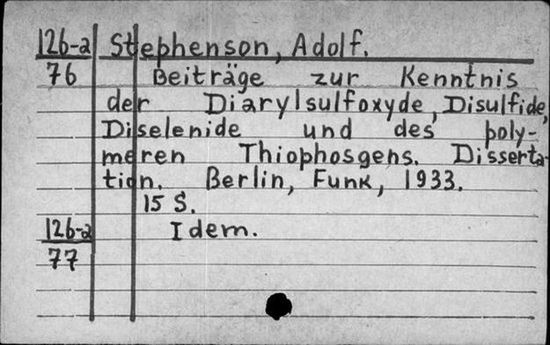 126-a Stephenson, Adolf.
76 Beiträge zur Kenntnis
der Diarylsulfoxyde, Disulfide,
Diselenide und des poly-
meren Thiophosgens. Disserta-
tion. Berlin, Funk, 1933.
15 S.
126-a Idem.
77